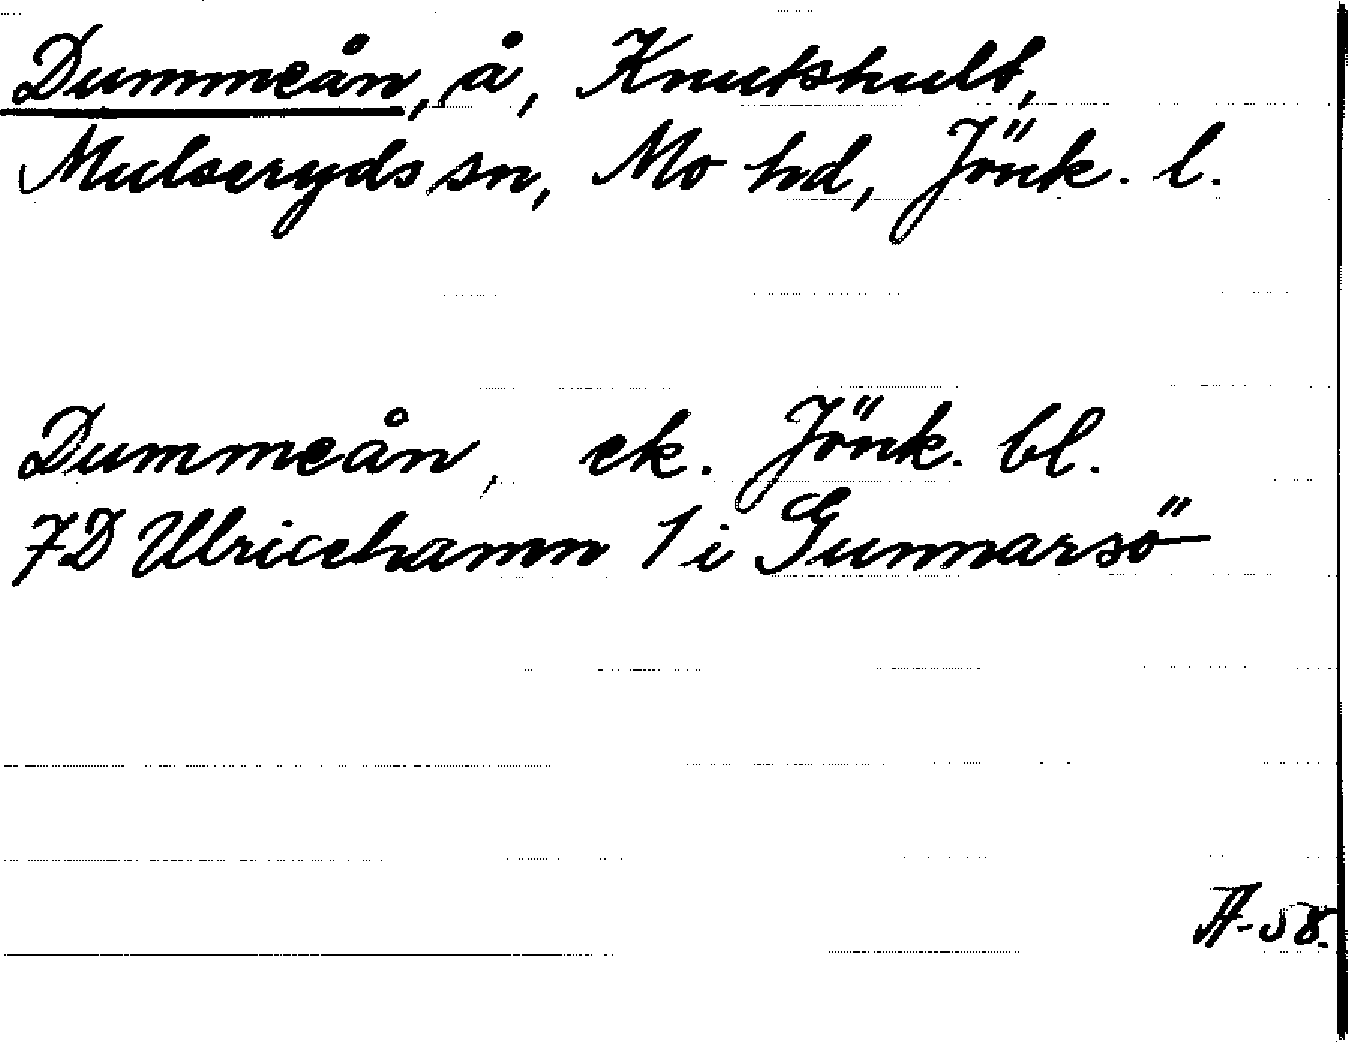 Dummeån, å, Knutshult,
Mulseryds sn, Mo hd, Jönk. l.
Dummeån, ek. Jönk. bl.
7D Ulricehamn 1 i Gunnarsö
A-58.